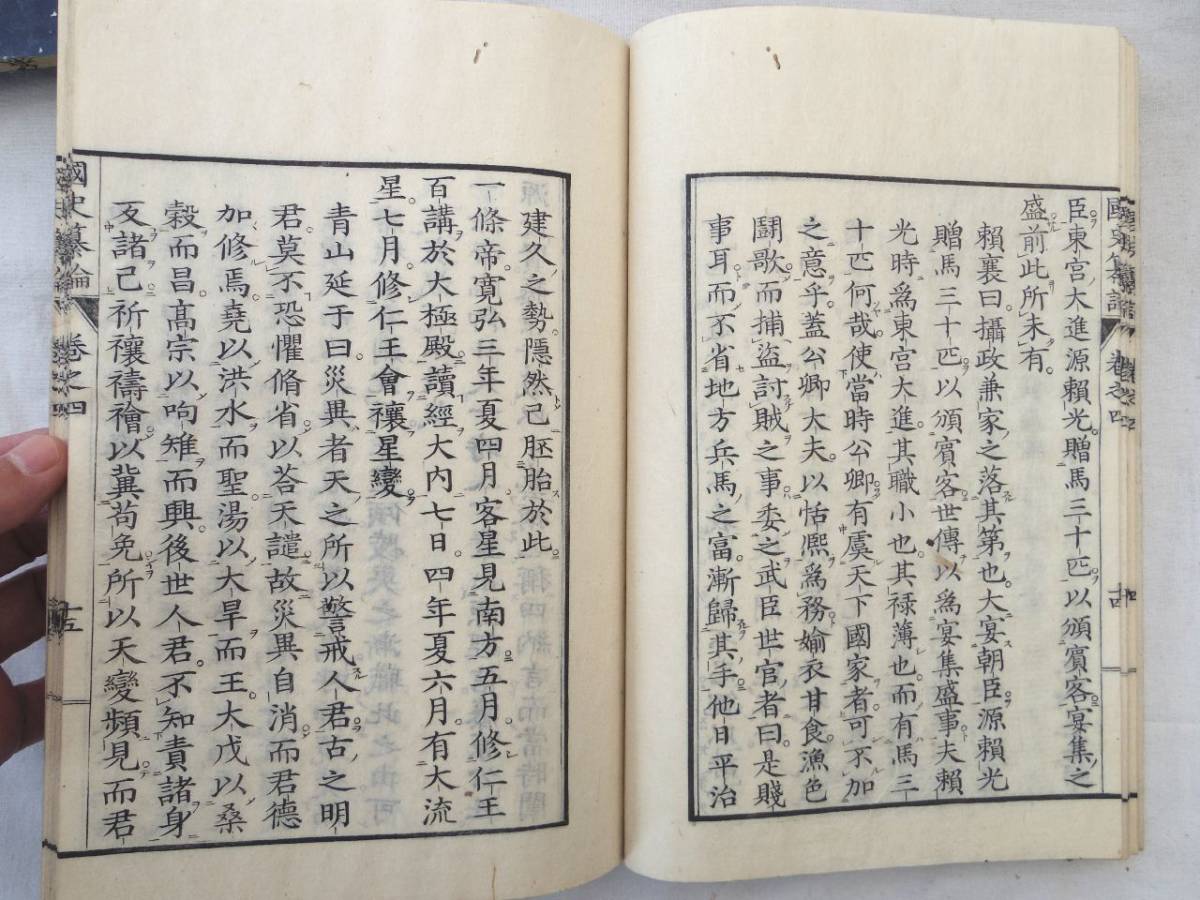 臣東宮大進源賴光。贈馬三十匹。以頒賓客宴集之
盛前此所未有。
賴襄曰攝政兼家之落其第也。大宴朝臣源賴光
贈馬三十匹以頒賓客世傳以爲宴集盛事夫賴
光時爲東宮大進其職小也其祿薄也而有馬三
十匹何哉使當時公卿有虞天下國家者可不加
之意乎。蓋公卿大夫。以恬熙爲務婾衣甘食漁色
鬪歌。而捕盜討賊之事。委之武臣世官者曰。是賤
事耳而不省地方兵馬之富漸歸其手他日平治
國史纂論 卷之四 十四
建久之勢。隱然已胚胎於此
一條帝。寬弘三年夏四月。客星見南方五月。修仁王
百講於大極殿讀經大内七日。四年夏六月。有大流
星。七月修仁王會禳星變。
青山延于曰災異者天之所以警戒人君古之明
君。莫不恐懼脩省以荅天譴故災異自消而君德
加修焉。堯以洪水而聖湯以大旱而王大戊以桑
穀而昌。高宗以雊雉而興。後世人君。不知責諸身
反諸己祈禳禱禬以冀苟免所以天變頻見而君
國史纂論 卷之四 十五